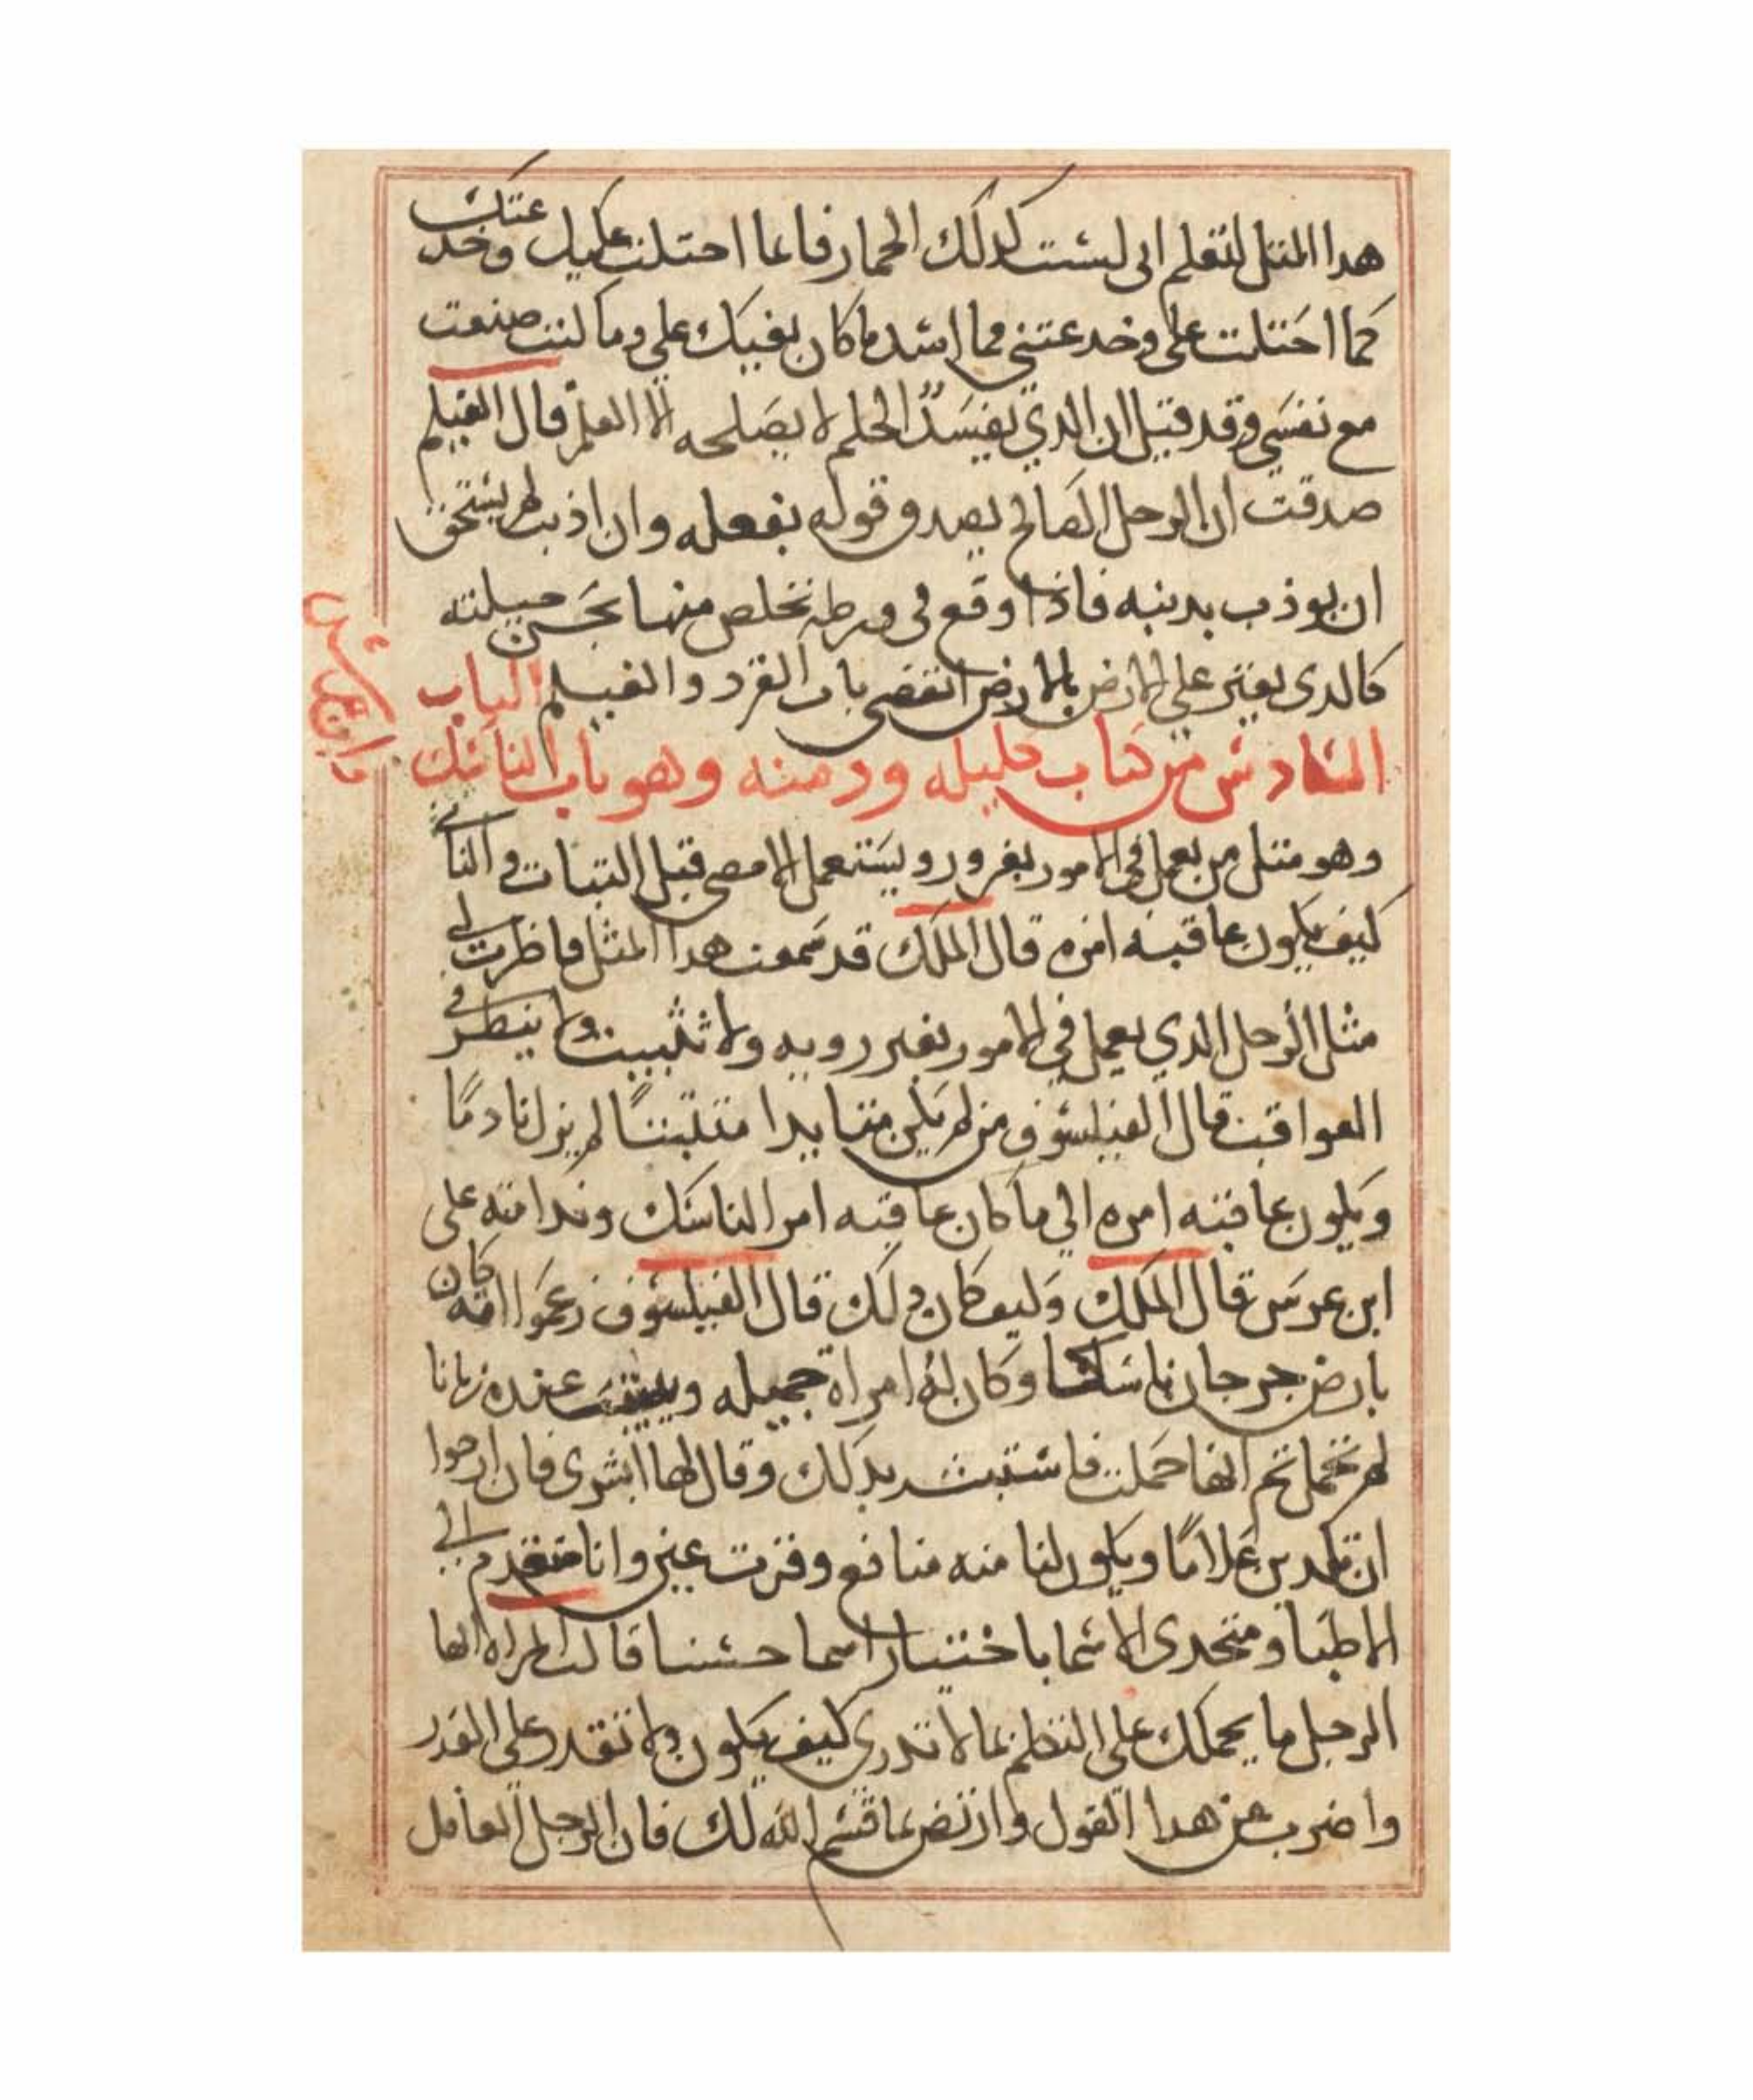 هدا المتل لتعلم انى لست كدلك الحمار فانما احتلت عليك وخدعتك
كما احتلت على وخدعتنى فما اشد ما كان بغيك على وما كنت صنعت
مع نفسي وقد قيل ان الدي يفسده الحلم لا يصلحه الا العلم قال الغيلم
صدقت ان الرجل الصالح يصدق قوله بفعله وان اذنب لم يستحق
ان يوذب بدنبه فاذا وقع في ورطه تخلص منها بحسن حيلته
كالدى يعتر على الارض بالارض انقضى باب القرد والغيلم الباب
السادس من كتاب كليله ودمنه وهو باب الناسك
وهو متل من يعمل فى الامور بغرور ويستعمل الامضى قبل التبات والتانى
كيف يكون عاقبه امره قال الملك قد سمعت هدا المثل فاظرب لي
مثل الرجل الدي يعمل في الامور بغير رويه ولا تثبيت ولا ينظر في
العواقب قال الفيلسوف من لم يكن متايدا متثبتًا لم يزل نادمًا
ويكون عاقبه امره الي ما كان عاقبه امر الناسك وندامته على
ابن عرس قال الملك وكيف كان دلك قال الفيلسوف زعموا انه كان
بارض جرجان ناسكا وكان له امراة جميله ولبثت عنده زمانا
لم تحمل تم انها حملت فاستبشر بدلك وقال لها ابشرى فان ارجوا
ان تلدين غلامًا ويكون لنا منه منافع وقرت عين وانا متقدم الي
الاطبا ومتحرى الاسما باختيار اسما حسنا قالت المراه ايها
الرجل ما يحملك على التكلم بما لا تدرى كيف يكون ولا تقدر على القدر
واضرب عن هدا القول وارتض بما قسم الله لك فان الرجل العاقل